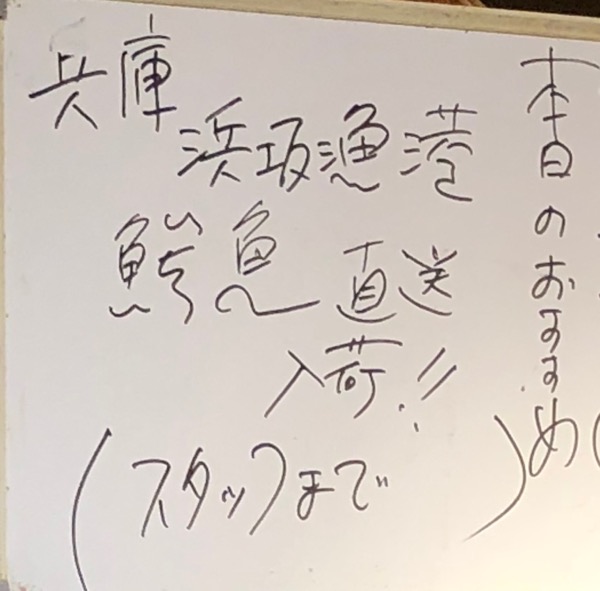 本日のおすすめ
兵庫
浜坂漁港
鮮魚 直送
入荷!!
(スタッフまで)